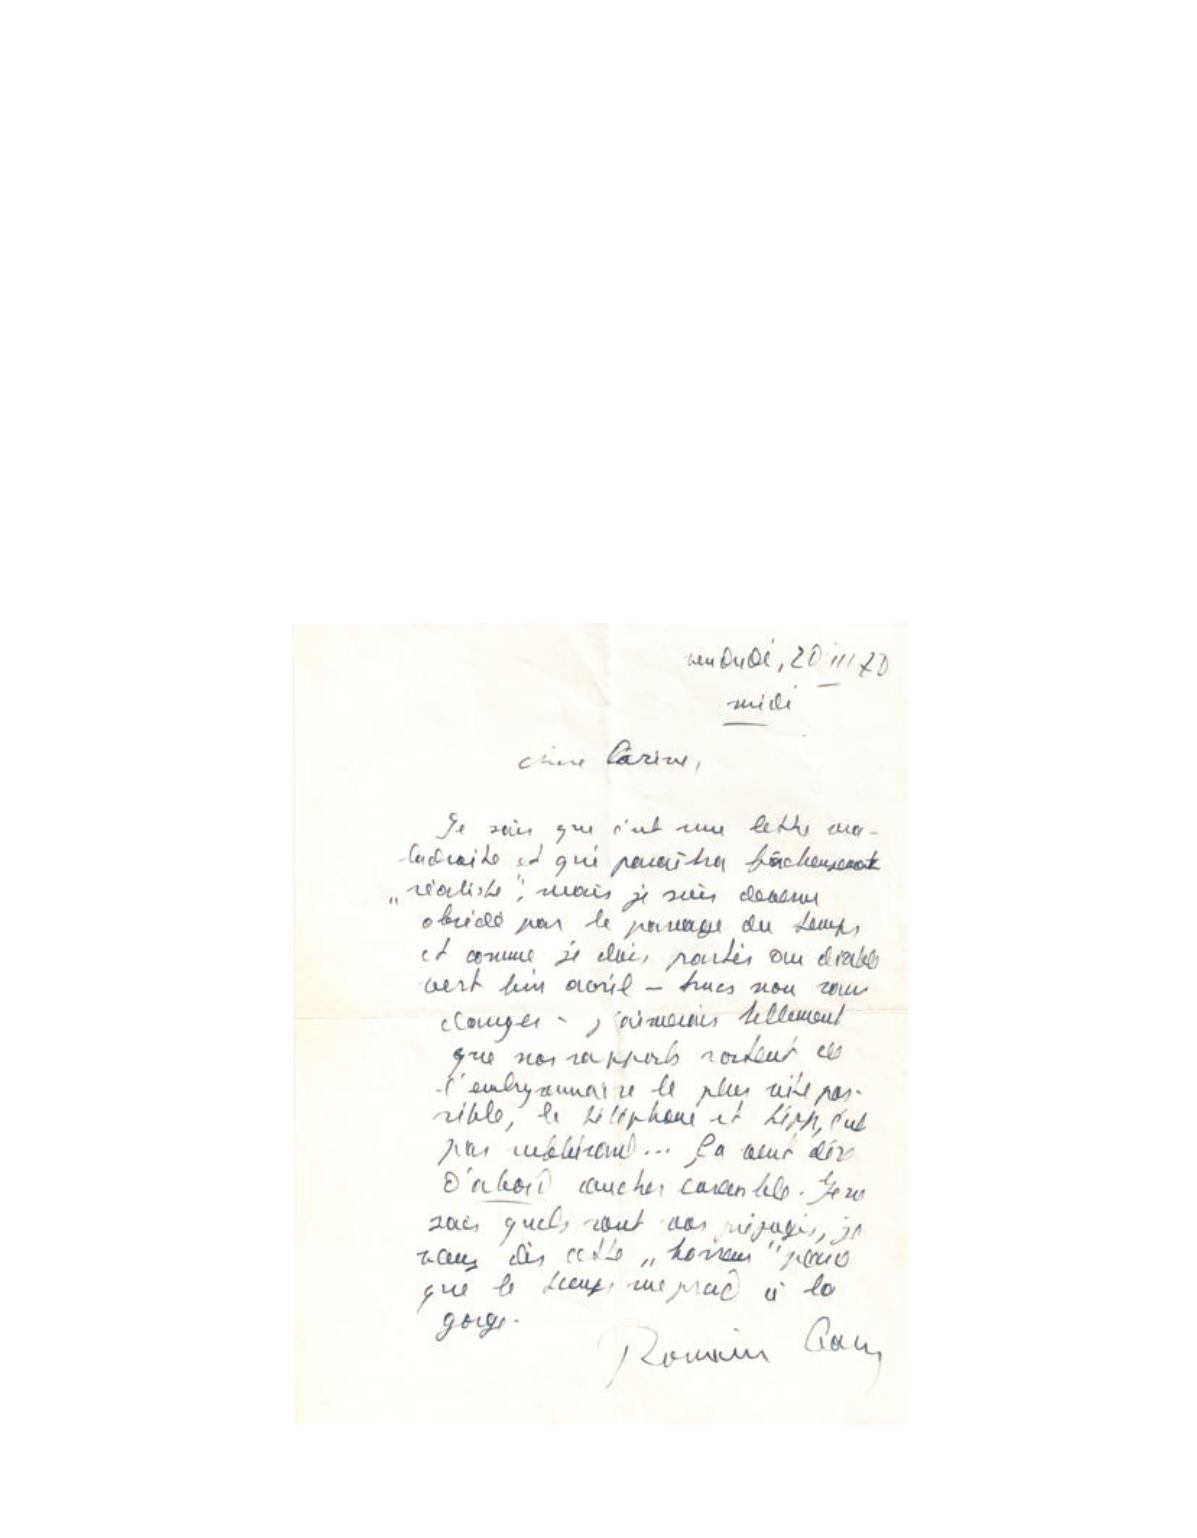 vendredi, 20 III 70
midi
chère Carine,
Je sais que c'est une lettre ma-
ladroite et qui paraîtra fâcheusement
„réaliste", mais je suis devenu
obsédé par le passage du temps
et comme je dois partir au diable
vert fin avril –
changer – j'aimerais tellement
que nos rapports sortent de
l'embryonnaire le plus vite pos-
sible, le téléphone et Lipp, c'est
pas suffisant... Ça veut dire
d'abord coucher ensemble. Je ne
sais quels sont vos préjugés, je
vous dis cette „horreur" parce
que le temps me prend à la
gorge.
Romain Gary